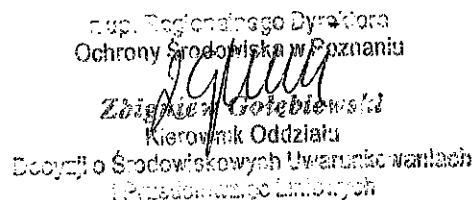 z up. Regionalnego Dyrektora
Ochrony Środowiska w Poznaniu
Zbigniew Gołębiewski
Kierownik Oddziału
Decyzji o Środowiskowych Uwarunkowaniach
i Przedsięwzięć Liniowych